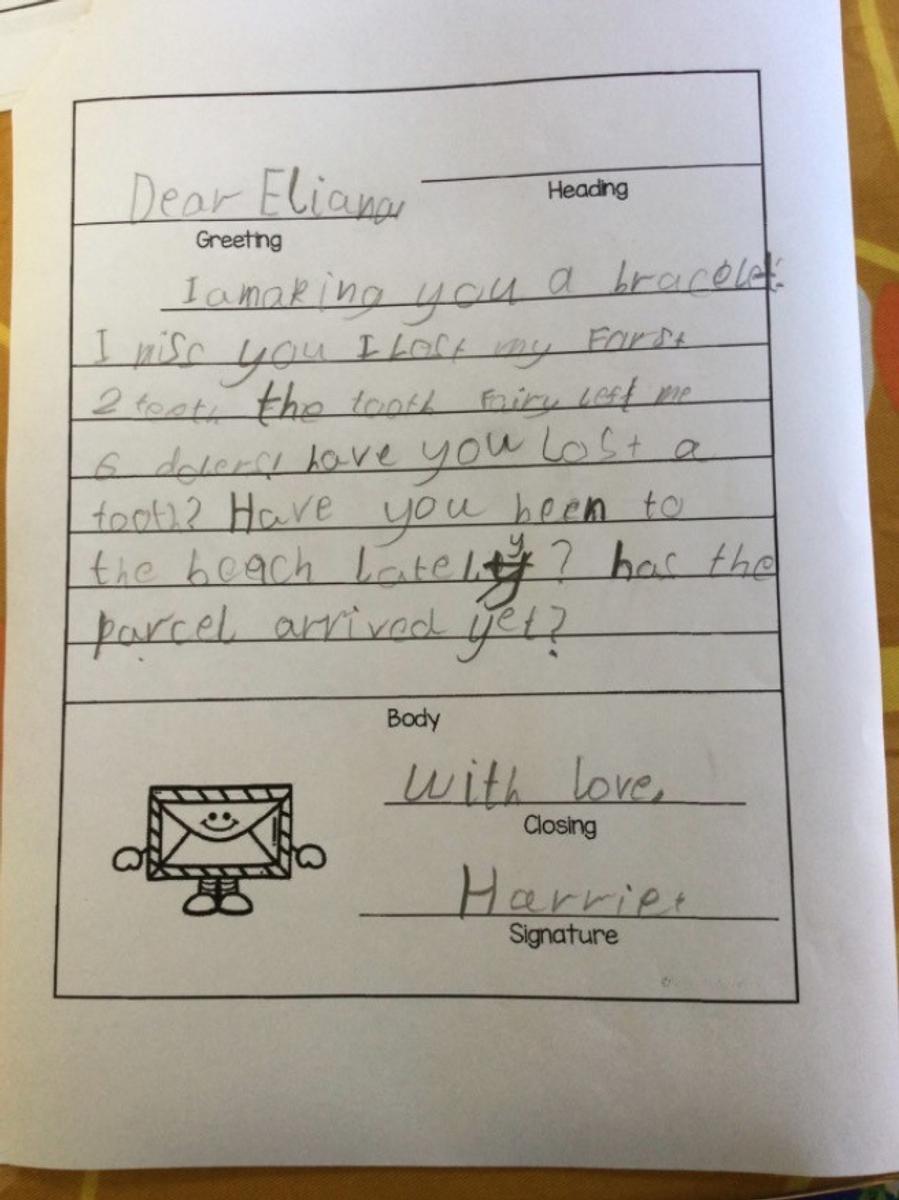 Dear Eliana
Heading
Greeting
I amaking you a bracelet.
I miss you I Lost my Farst
2 teeth the tooth Fairy left me
6 dolers! have you Lost a
tooth? Have you been to
the beach Lately? has the
parcel arrived yet?
Body
with love,
Closing
Harriet
Signature